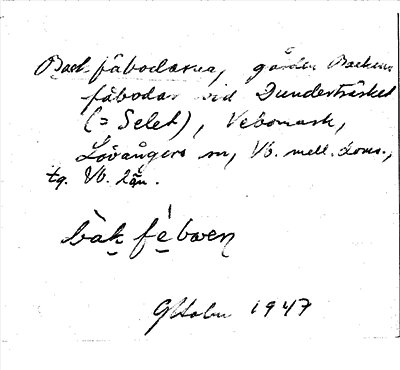 Backfäbodarna, gården Backens
fäbodar vid Dunderträsket
(= Selet), Vebomark,
Lövångers sn, Vb. mell. doms.,
tg. Vb. län.
bàk fébωen̥
GHolm 1947